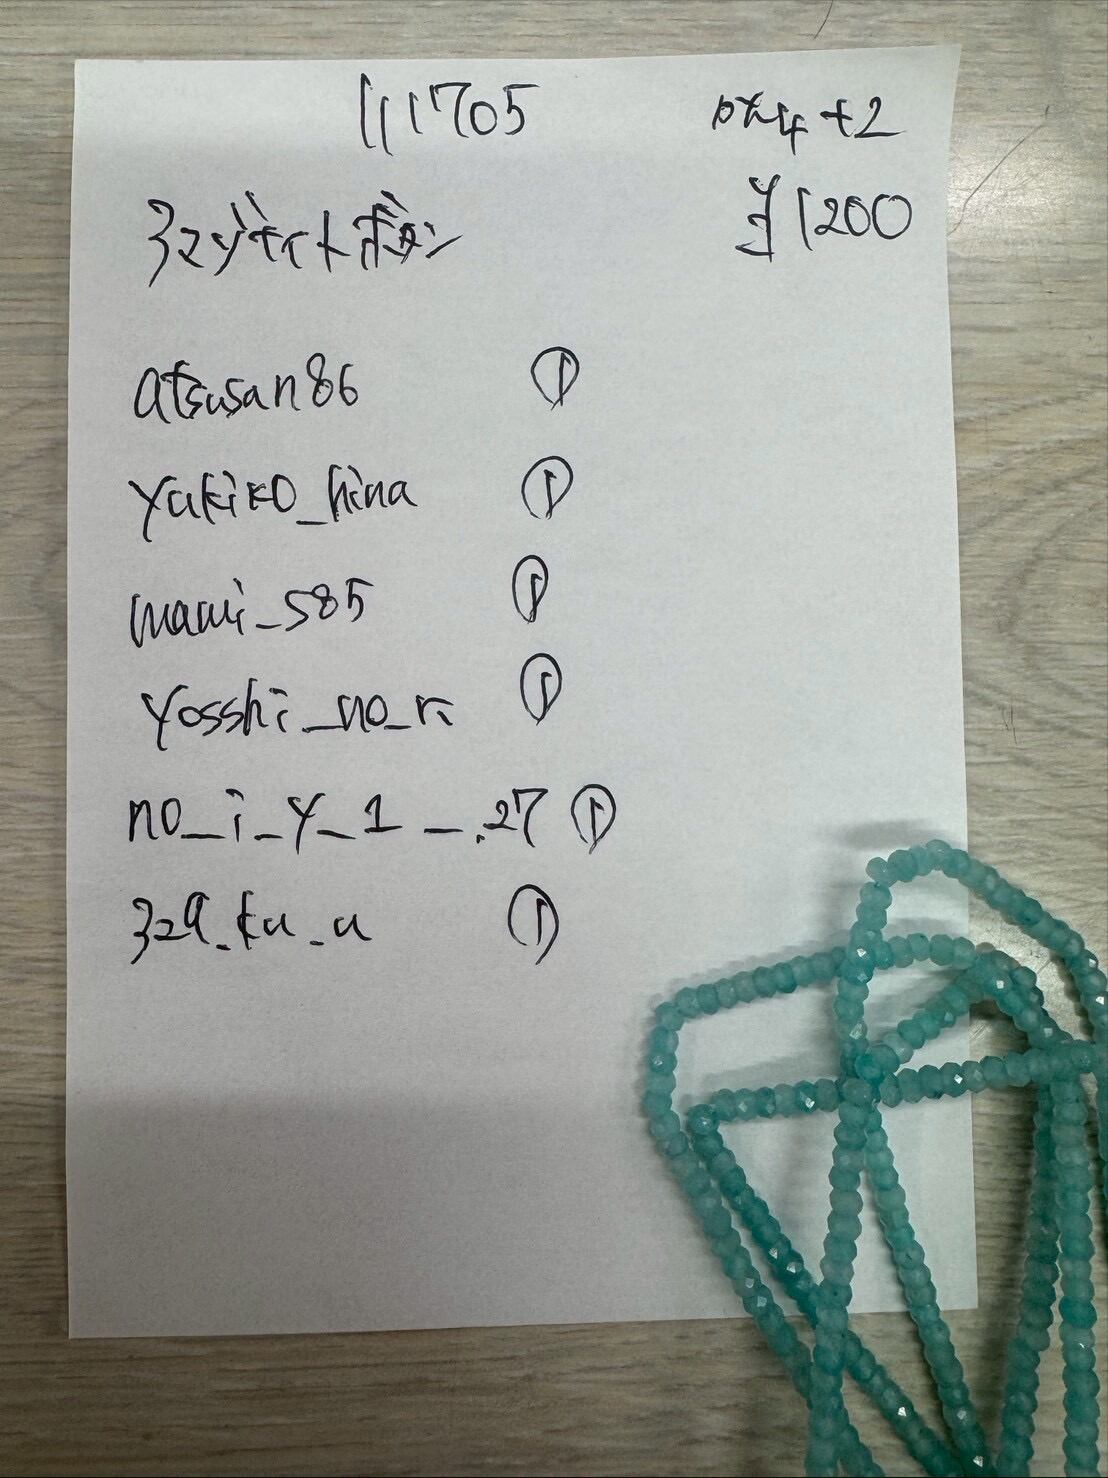 111705
px4+2
¥1200
アマゾナイトボタン
atsusan86 ①
yukiko_hina ①
mami_s85 ①
yosshi_no_ri ①
no_i_y_1_.27 ①
329_ku_u ①